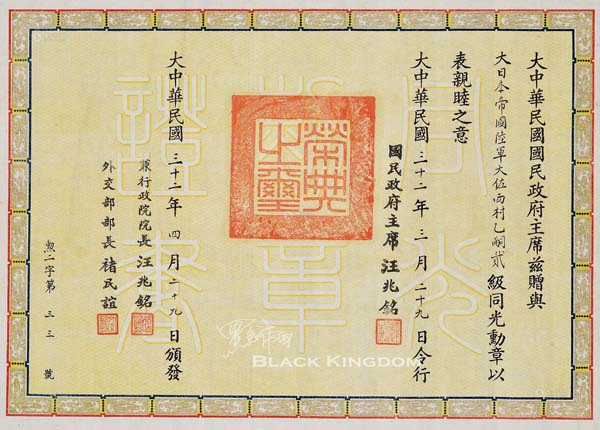 大中華民國國民政府主席茲贈與
大日本帝國陸軍大佐西村乙嗣貳級同光勳章以
表親睦之意
大中華民國三十二年三月二十九日令行
國民政府主席汪兆銘
榮典之璽
大中華民國三十二年四月二十九日頒發
兼行政院院長汪兆銘
外交部部長褚民誼
勲二字第三三號
同光
勳章
證書
BLACK KINGDOM